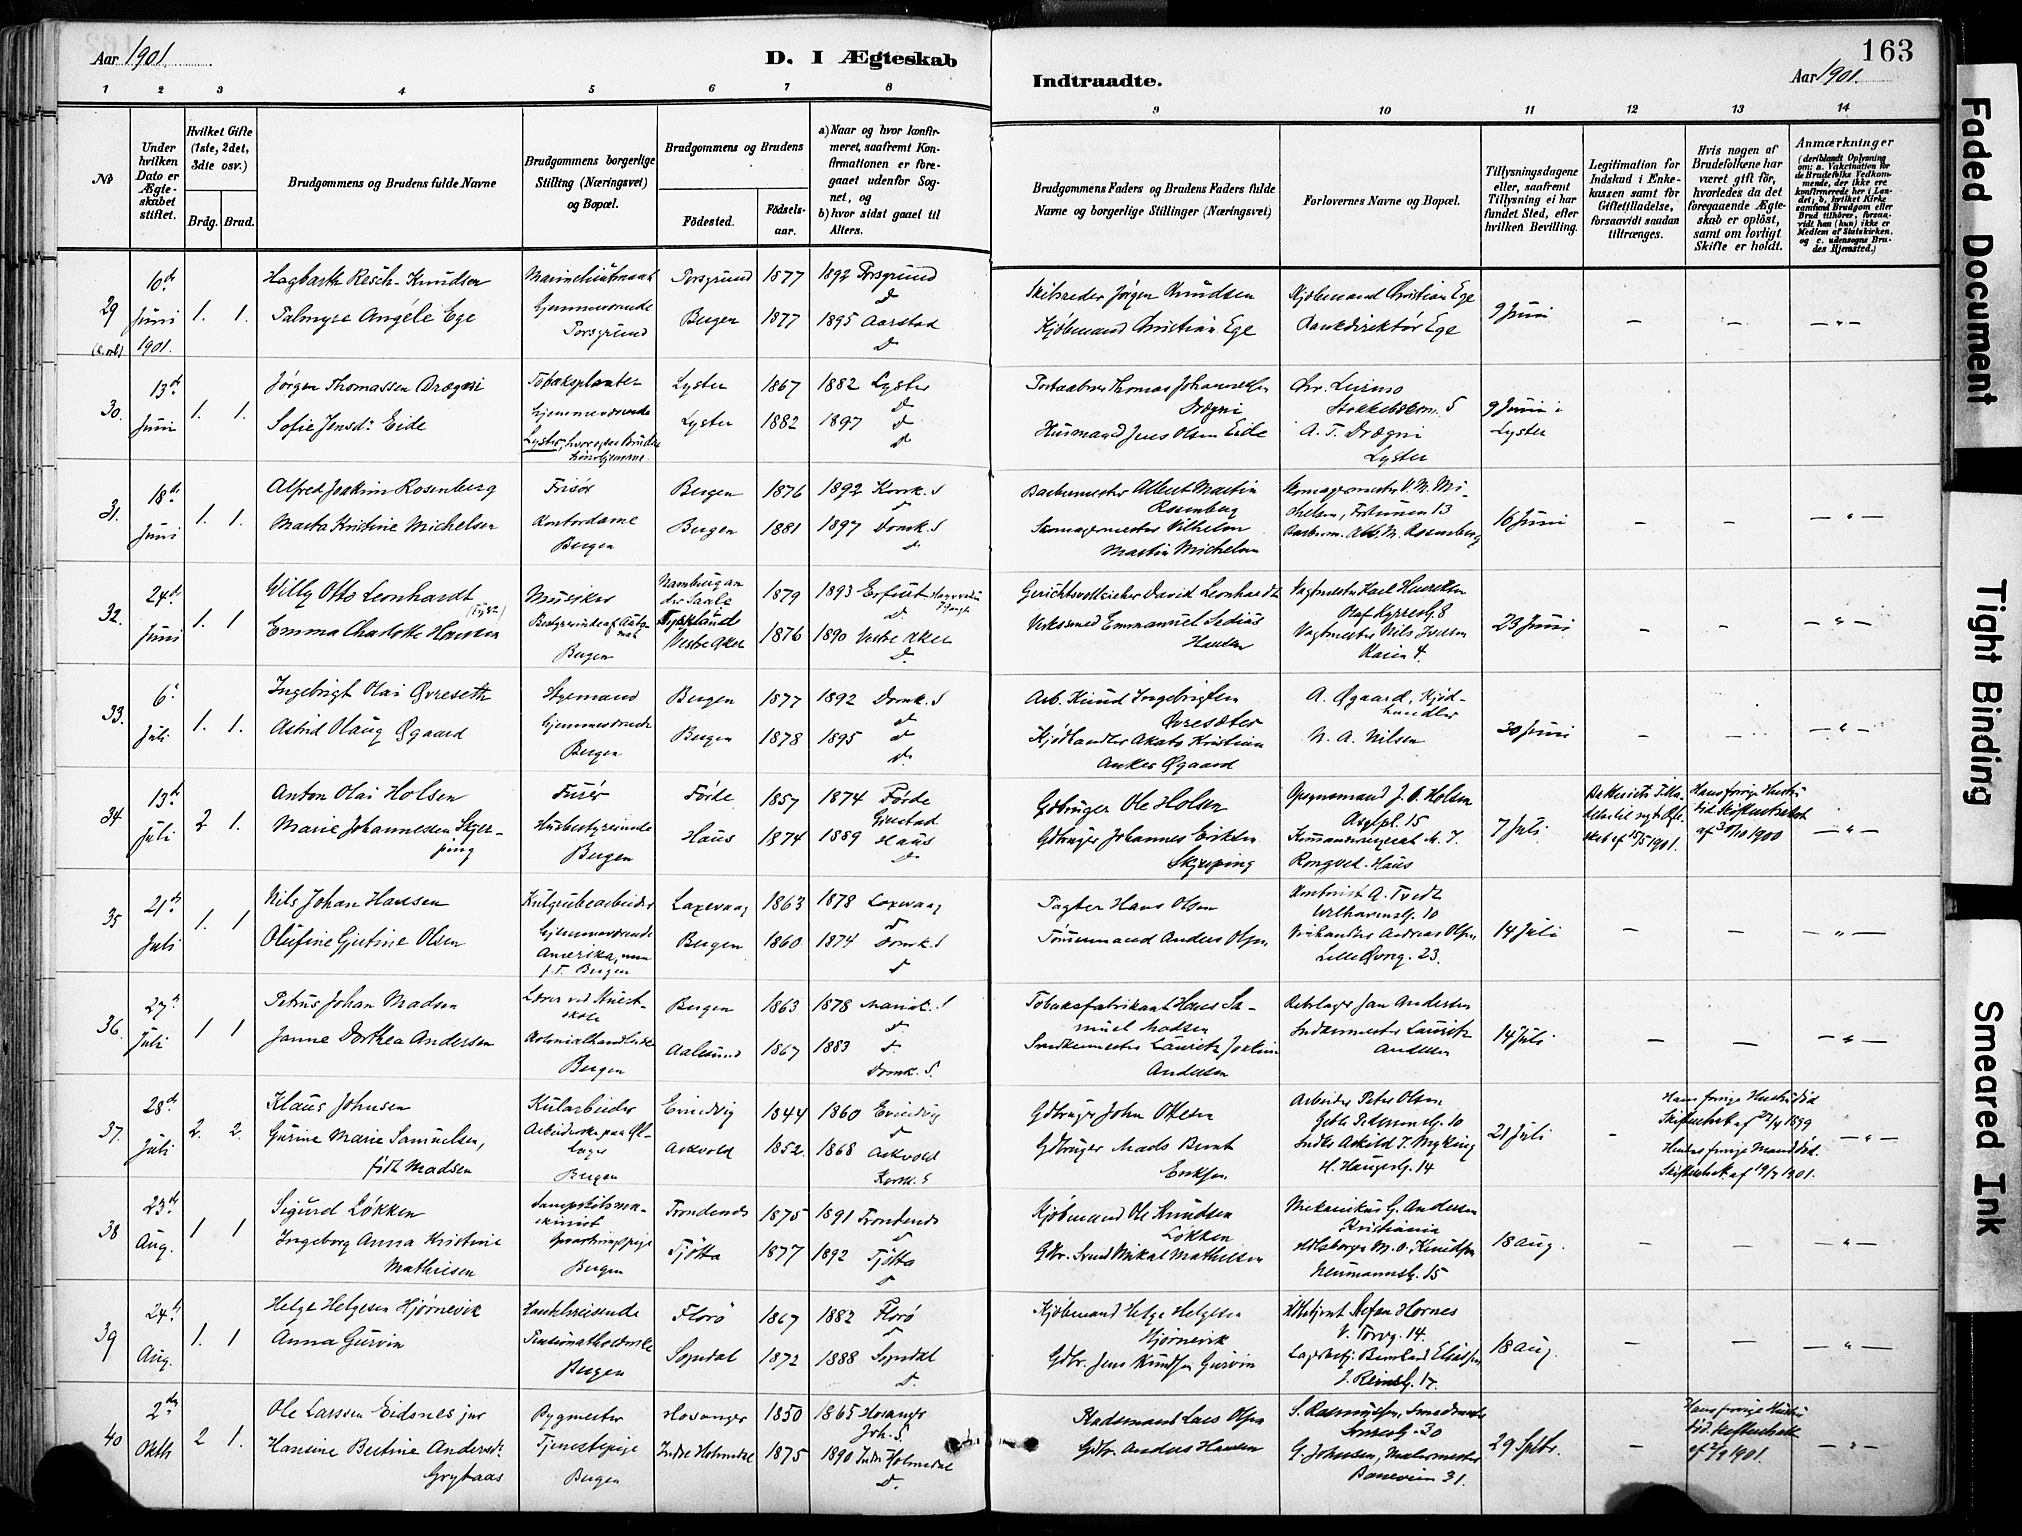 Aar 1901.
D. I Ægteskab
1 2 3 4 5 6 7 8
No
Under hvilken Dato er Ægteskabet stiftet.
Hvilket Gifte (1ste, 2det, 3die osv.)
Brdg. Brud.
Brudgommens og Brudens fulde Navne
Brudgommens borgerlige Stilling (Næringsvei) og Bopæl.
Brudgommens og Brudens
Fødested.
Fødselsaar.
a) Naar og hvor konfirmeret, saafremt Konfirmationen er foregaaet udenfor Sognet, og
b) hvor sidst gaaet til Alters.
163
Indtraadte.
Aar 1901.
9 10 11 12 13 14
Brudgommens Faders og Brudens Faders fulde Navne og borgerlige Stillinger (Næringsvei)
Forlovernes Navne og Bopæl.
Tillysningsdagene eller, saafremt Tillysning ei har fundet Sted, efter hvilken Bevilling.
Legitimation for Indskud i Enkekassen samt for Giftetilladelse, forsaavidt saadan tiltrænges.
Hvis nogen af Brudefolkene har været gift før, hvorledes da det foregaaende Ægteskab er opløst, samt om lovligt Skifte er holdt.
Anmærkninger
(deriblandt Oplysning om: a. Vakcination for de Brudefolks Vedkommende, der ikke ere konfirmerede her i Landet; b. hvilket Kirkesamfund Brudgom eller Brud tilhører, forsaavidt han (hun) ikke er Medlem af Statskirken, og c. udensogns Brudes Hjemsted.)
29
10de Juni 1901.
1. 1.
Hagbarth Resch-Knudsen
Palmyre Angéle Ege
Hjemmeværende
Porsgrund
Porsgrund 1877 1892 Porsgrund
Bergen 1877 1895 Aarstad
Skibsreder Jørgen Knudsen
Kjøbmand Christian Ege
Kjøbmand Christian Ege
Bankdirektør Ege
9 Juni
30.
13de Juni
1. 1.
Jørgen Thomassen Drægni
Sofie Jensdr Eide
Tobaksplanter
Hjemmeværende
Lyster 1867 1882 Lyster
Lyster 1882 1897
Thomas Johannessen Drægni
Husmand Jens Olsen Eide
A. T. Drægni
Lyster
9 Juni i Lyster
31.
18de Juni
1. 1.
Alfred Joakim Rosenberg
Marta Kristine Michelsen
Frisør
Kontordame
Bergen
Bergen 1876 1892 Korsk. S
Bergen 1881 1897 Domk. S
Barbermester Albert Martin Rosenberg
Skomagermester Vilhelm Martin Michelsen
Skomagermester V. M. Michelsen, Fortunen 13
Barberm. Alb. M. Rosenberg
16 Juni
32.
24de Juni
1. 1
Willy Otto Leonhardt
Emma Charlotte Hansen
Musiker
Bergen
Naumburg an der Saale
Tyskland 1879 1893 Erfurt
Vestre Aker 1876 1890 Vestre Aker
David Leonhardt
Hansen
Olaf Kyrresg. 8
Vagtmester Nils Iversen
23 Juni
33.
6te Juli
1. 1.
Ingebrigt Olai Øvreseth
Astrid Olaug Øgaard
Styrmand
Hjemmeværende
Bergen
Bergen 1877 1892 Domk. S
Bergen 1878 1895
Arb. Knud Ingebrigtsen Øvresæter
Kjødhandler Akats Kristian Anker Øgaard
A. Øgaard, Kjødhandler
N. A. Nilsen
30 Juni
34
13de Juli
2 1.
Anton Olai Holsen
Marie Johannesen Skjerping
Husbestyrerinde
Bergen
Førde 1857 1874 Førde
Haus 1874 1889 Haus
Gdbruger Ole Holsen
Gdbruger Johannes Eriksen Skjerping
Opsynsmand J. O. Holsen
Rongved. Haus
7 Juli
15/5 1901.
Hans forrige Hustru død Skifteattest af 30/10 1900
35
21de Juli
1. 1
Nils Johan Hansen
Olufine Gjertine Olsen
Kulgrubearbeider
Hjemmeværende
Amerika, nu p. t. Bergen
Laxevaag 1863 1878 Laxevaag
Bergen 1860 1874 Domk. S
Hans Olsen
Tømmermand Anders Olsen
Kontorist A. Tvedt
Welhavensg. 10
Andreas Olsen
Lille Øvreg. 23.
14 Juli
36.
27de Juli
1 1
Petrus Johan Madsen
Janne Dorthea Andersen
Bergen
Bergen 1863 1878 Mariak. S
Aalesund 1867 1883
Domk. S.
Tobaksfabrikant Hans Samuel Madsen
Snedkermester Lauritz Joakim Andersen
Jan Andersen
Snedkermester Lauritz Andersen
14 Juli
37.
28de Juli
2. 2.
Klaus Johnsen
Gurine Marie Samuelsen, født Madsen
Kularbeider
Bergen
Evindvig 1844 1860 Evindvig
Askvold 1852 1868 Askvold
Korsk. S
Gdbruger John Olsen
Gdbruger Mads Bernt Eriksen
Arbeider Peter Olsen
Gebr. Pedersens g. 10
Askild T. Myking
H. Haugesg. 14
21 Juli
Hans forrige Hustru død Skifteattest af 27/4 1899
Hendes forrige Mand død. Skifteattest af 19/7 1901.
38
23de Aug.
1 1
Sigurd Løkken
Ingeborg Anna Kristine Mathiesen
Dampskibsmaskinist
Opvartningspige
Bergen
Trondenes 1875 1891 Trondenes
Tjøtta 1877 1892 Tjøtta
Kjøbmand Ole Knudsen Løkken
Mikal Mathiesen
Mekanikus G. Andersen
Kristiania
M. O. Knudsen
Neumannsg. 15
18 Aug.
39
24de Aug.
1. 1
Helge Helgesen Hjørnevik
Anna Gurvin
Handelsreisende
Bergen
Florø 1867 1882 Florø
Sogndal 1872 1888 Sogndal
Kjøbmand Helge Helgesen Hjørnevik
Gdbr. Jens Knudsen Gurvin
Stefan Hornes
V. Torvg. 14.
18 Aug.
40
2den Oktb
2 1.
Ole Larssen Eidsnes jnr
Hansine Bertine Andersdr. Grytaas
Bygmester
Tjenestepige
Bergen
Hosanger 1850 1865 Hosanger
Joh. S.
Indre Holmedal 1875 1890 Indre Holmedal
Lars Olsen
Gdbr. Anders Hansen
S. Rasmussen
G. Johnsen, Malermester
Baneveien 31.
29 Septbr.
Hans forrige Hustru død. Skifteattest af 2/9 1901.
Faded Document
Tight Binding
Smeared Ink